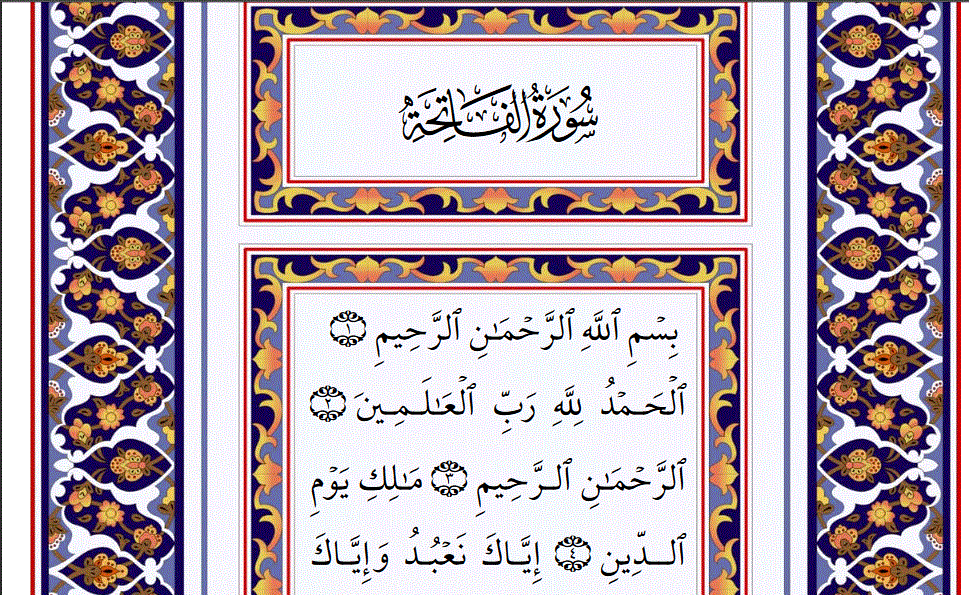 سُورَةُ الفَاتِحَةِ
بِسْمِ ٱللَّهِ ٱلرَّحْمَـٰنِ ٱلرَّحِيمِ ١
ٱلْحَمْدُ لِلَّهِ رَبِّ ٱلْعَـٰلَمِينَ ٢
ٱلرَّحْمَـٰنِ ٱلرَّحِيمِ ٣ مَـٰلِكِ يَوْمِ
ٱلدِّينِ ٤ إِيَّاكَ نَعْبُدُ وَإِيَّاكَ